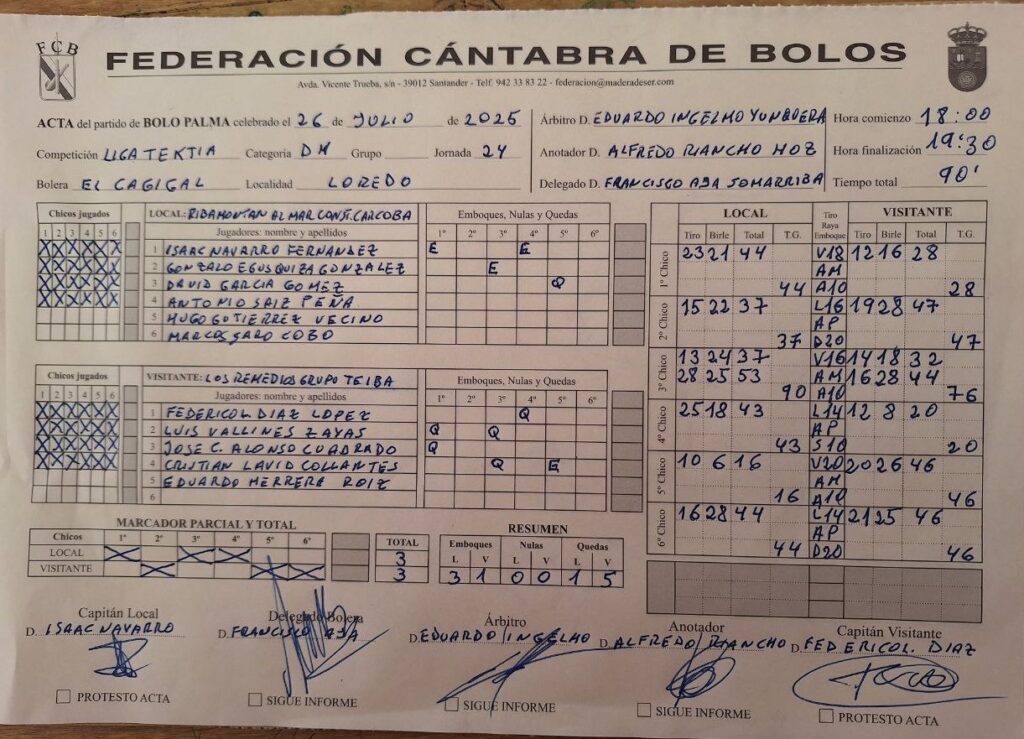 FCB
FEDERACIÓN CÁNTABRA DE BOLOS
Avda. Vicente Trueba, s/n - 39012 Santander - Telf. 942 33 83 22 - federacion@maderadeser.com
ACTA del partido de BOLO PALMA celebrado el 26 de JULIO de 2025
Competición LIGA TEKTIA Categoría DH Grupo Jornada 24
Bolera EL CAGIGAL Localidad LOREDO
Árbitro D. EDUARDO INGELMO YUNQUERA
Anotador D. ALFREDO RIANCHO HOZ
Delegado D. FRANCISCO AJA SOMARRIBA
Hora comienzo 18:00
Hora finalización 19:30
Tiempo total 90'
Chicos jugados
1 2 3 4 5 6
LOCAL: RIBAMONTAN AL MAR CONST. CARCOBA
Jugadores: nombre y apellidos
Emboques, Nulas y Quedas
1º 2º 3º 4º 5º 6º
1 ISAAC NAVARRO FERNANDEZ E E
2 GONZALO EGUSQUIZA GONZALEZ E
3 DAVID GARCIA GOMEZ Q
4 ANTONIO SAIZ PEÑA
5 HUGO GUTIERREZ VECINO
6 MARCOS SARO COBO
Chicos jugados
1 2 3 4 5 6
VISITANTE: LOS REMEDIOS GRUPO TEIBA
Jugadores: nombre y apellidos
Emboques, Nulas y Quedas
1º 2º 3º 4º 5º 6º
1 FEDERICO L. DIAZ LOPEZ Q
2 LUIS VALLINES ZAYAS Q Q
3 JOSE C. ALONSO CUADRADO Q
4 CRISTIAN LAVID COLLANTES Q E
5 EDUARDO HERRERA ROIZ
6
MARCADOR PARCIAL Y TOTAL
Chicos 1º 2º 3º 4º 5º 6º TOTAL
LOCAL X X X 3
VISITANTE X X X 3
RESUMEN
Emboques Nulas Quedas
L V L V L V
3 1 0 0 1 5
LOCAL Tiro Raya Emboque VISITANTE
Tiro Birle Total T.G. Tiro Birle Total T.G.
1º Chico 23 21 44 V18 12 16 28
AM
44 A10 28
2º Chico 15 22 37 L16 19 28 47
AP
37 D20 47
3º Chico 13 24 37 V16 14 18 32
28 25 53 AM 16 28 44
90 A10 76
4º Chico 25 18 43 L14 12 8 20
AP
43 S10 20
5º Chico 10 6 16 V20 20 26 46
AM
16 A10 46
6º Chico 16 28 44 L14 21 25 46
AP
44 D20 46
Capitán Local
D. ISAAC NAVARRO
PROTESTO ACTA
Delegado Bolera
D. FRANCISCO AJA
SIGUE INFORME
Árbitro
D. EDUARDO INGELMO
SIGUE INFORME
Anotador
D. ALFREDO RIANCHO
SIGUE INFORME
Capitán Visitante
D. FEDERICO L. DIAZ
PROTESTO ACTA